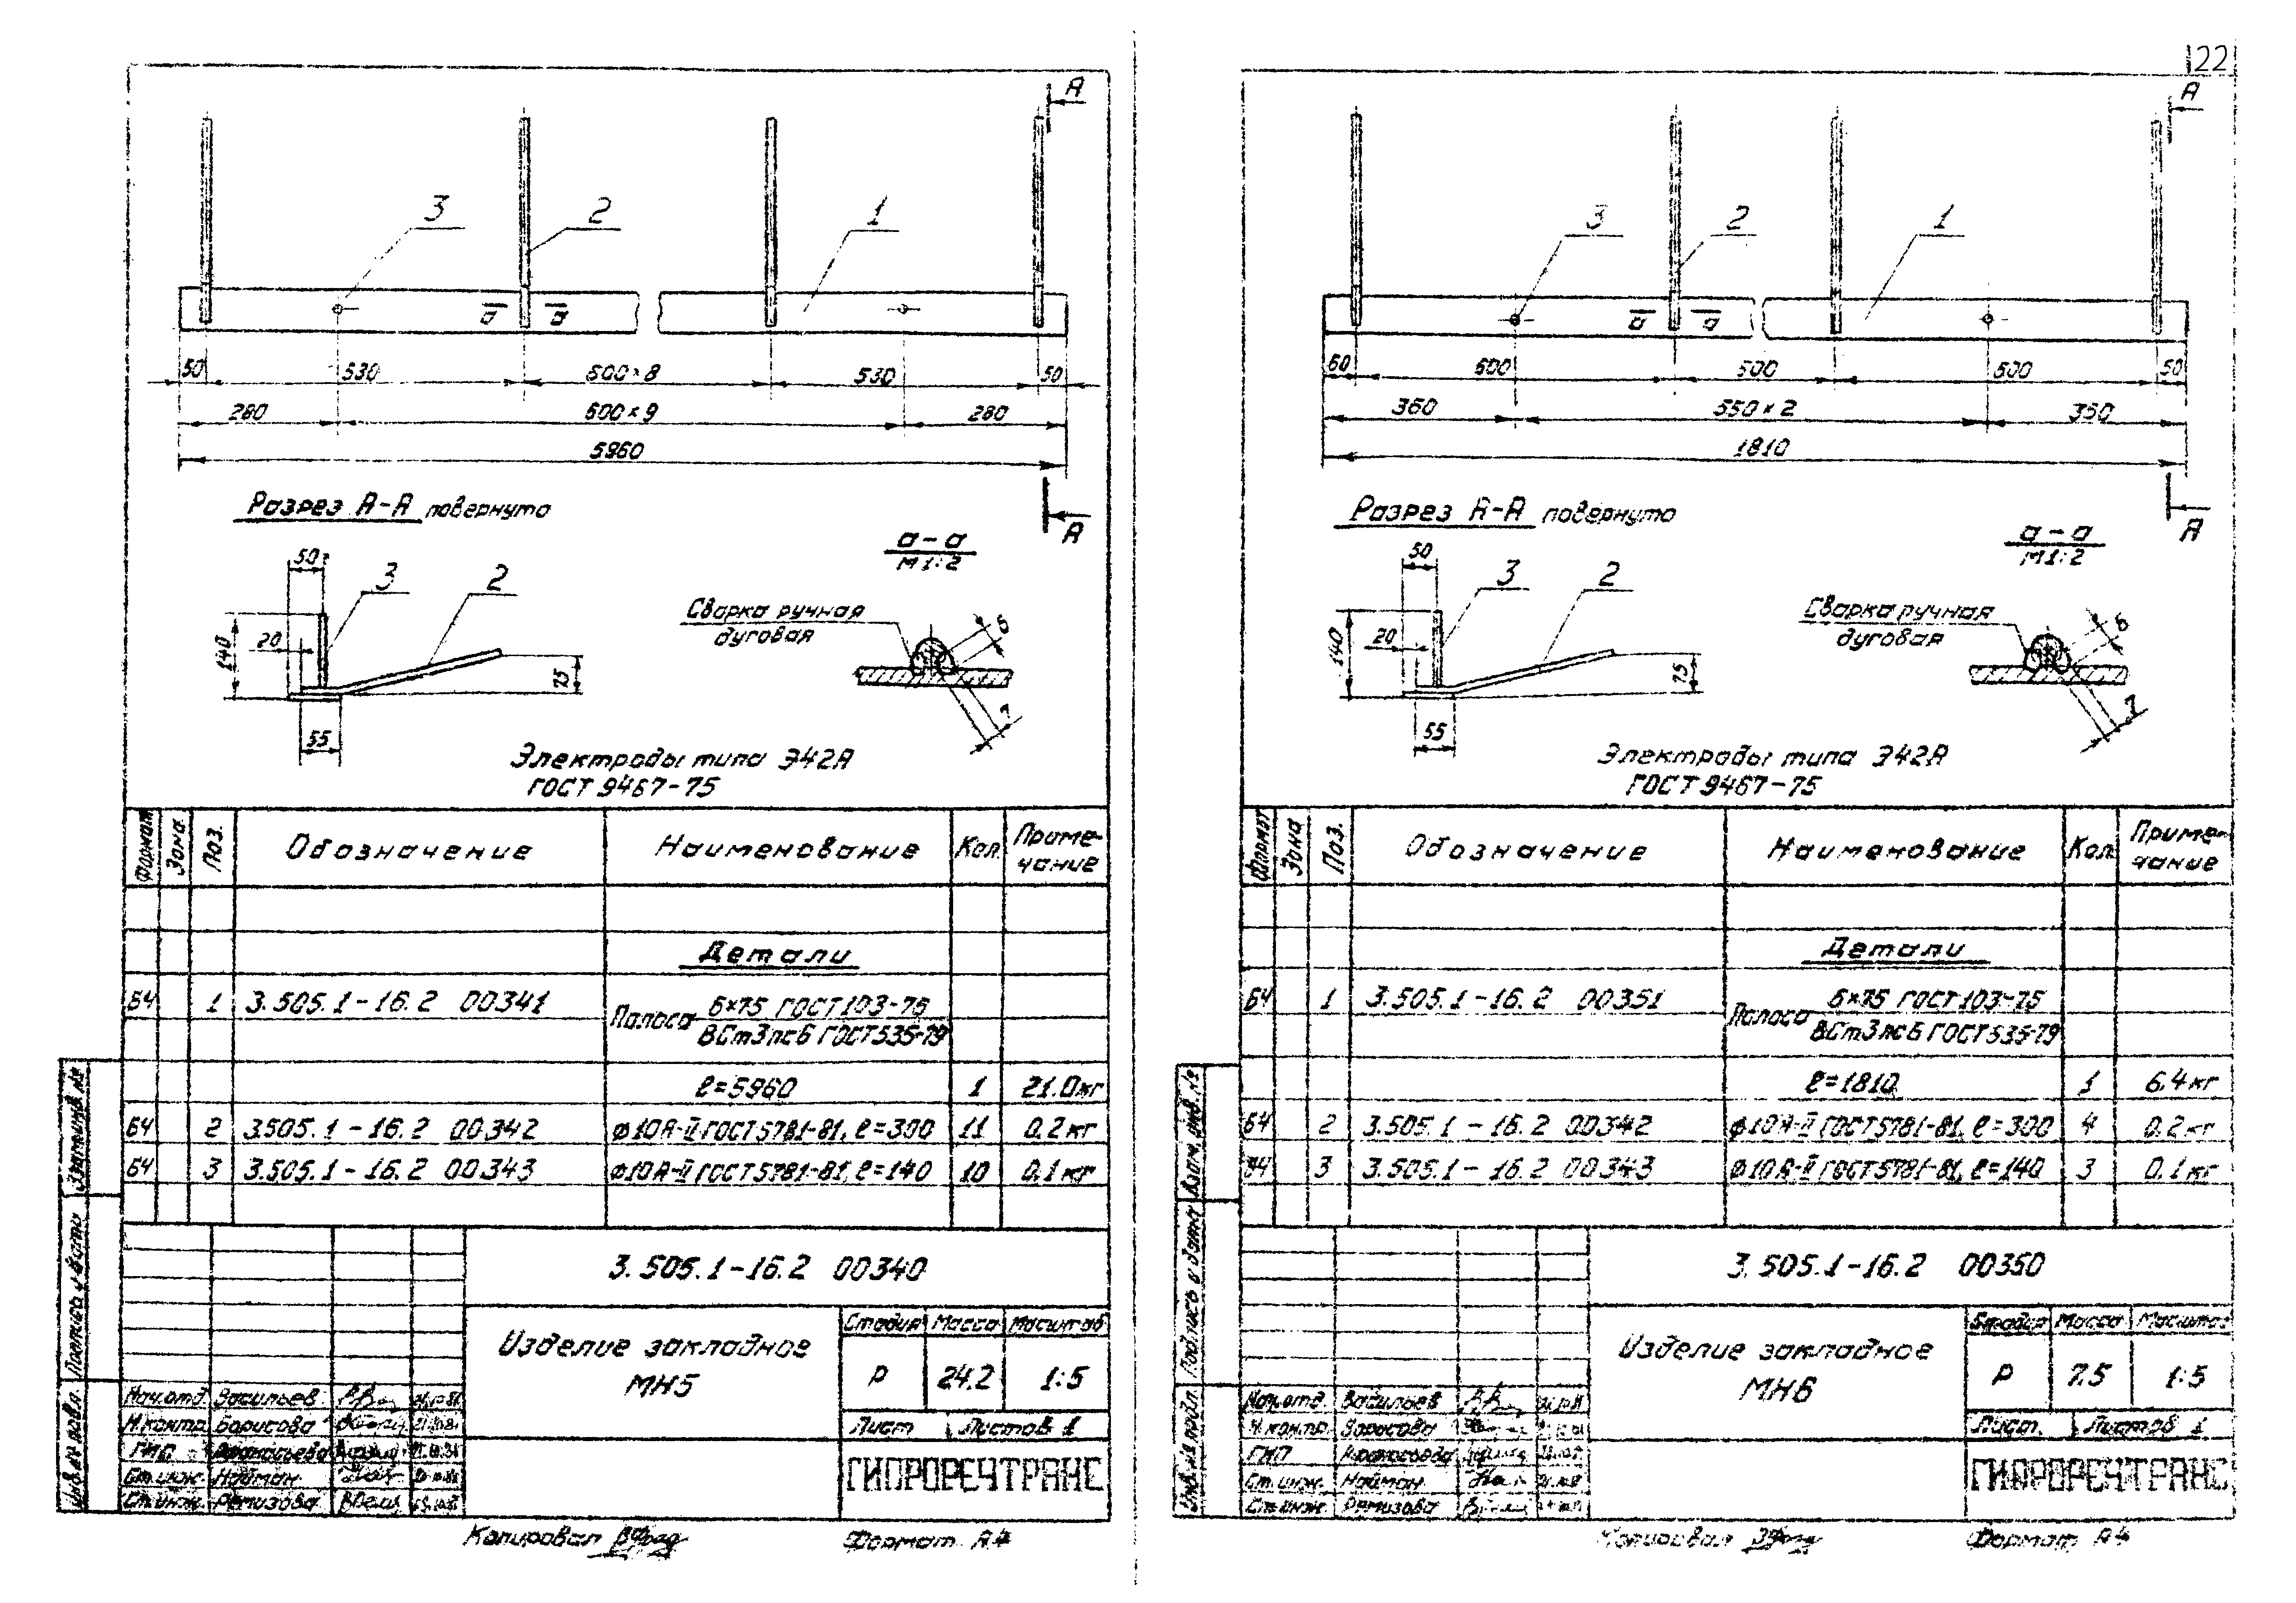 122
А
3
2
1
а
а
50
530
600×8
530
50
280
600×9
280
5960
А
Разрез А-А повернуто
а-а
М1:2
50
3
2
140
20
75
55
Сварка ручная
дуговая
6
7
Электроды типа Э42А
ГОСТ 9467-75
Формат
Зона
Поз.
Обозначение
Наименование
Кол.
Приме-
чание
Детали
БЧ 1 3.505.1-16.2 00341 Полоса 6×75 ГОСТ 103-76
ВСт3пс6 ГОСТ 535-79
ℓ=5960 1 21.0кг
БЧ 2 3.505.1-16.2 00342 ф10А-II ГОСТ 5781-81, ℓ=300 11 0.2кг
БЧ 3 3.505.1-16.2 00343 ф10А-II ГОСТ 5781-81, ℓ=140 10 0.1кг
3.505.1-16.2 00340
Изделие закладное
МН5
Стадия Масса Масштаб
Р 24.2 1:5
Лист Листов 1
ГИПРОРЕЧТРАНС
Нач.отд. Васильев
Н.контр. Борисова
ГИП Афанасьева
Ст.инж. Найман
Ст.инж. Ремизова
Взам.инв.№
Подпись и дата
Инв.№ подл.
Копировал
Формат А4
А
3
2
1
а
а
60
500
500
500
50
360
550×2
350
1810
А
Разрез А-А повернуто
а-а
М1:2
50
3
2
140
20
75
55
Сварка ручная
дуговая
6
7
Электроды типа Э42А
ГОСТ 9467-75
Формат
Зона
Поз.
Обозначение
Наименование
Кол.
Приме-
чание
Детали
БЧ 1 3.505.1-16.2 00351 Полоса 6×75 ГОСТ 103-76
ВСт3пс6 ГОСТ 535-79
ℓ=1810 1 6.4кг
БЧ 2 3.505.1-16.2 00342 ф10А-II ГОСТ 5781-81, ℓ=300 4 0.2кг
БЧ 3 3.505.1-16.2 00343 ф10А-II ГОСТ 5781-81, ℓ=140 3 0.1кг
3.505.1-16.2 00350
Изделие закладное
МН6
Стадия Масса Масштаб
Р 7.5 1:5
Лист Листов 1
ГИПРОРЕЧТРАНС
Нач.отд. Васильев
Н.контр. Борисова
ГИП Афанасьева
Ст.инж. Найман
Ст.инж. Ремизова
Взам.инв.№
Подпись и дата
Инв.№ подл.
Копировал
Формат А4